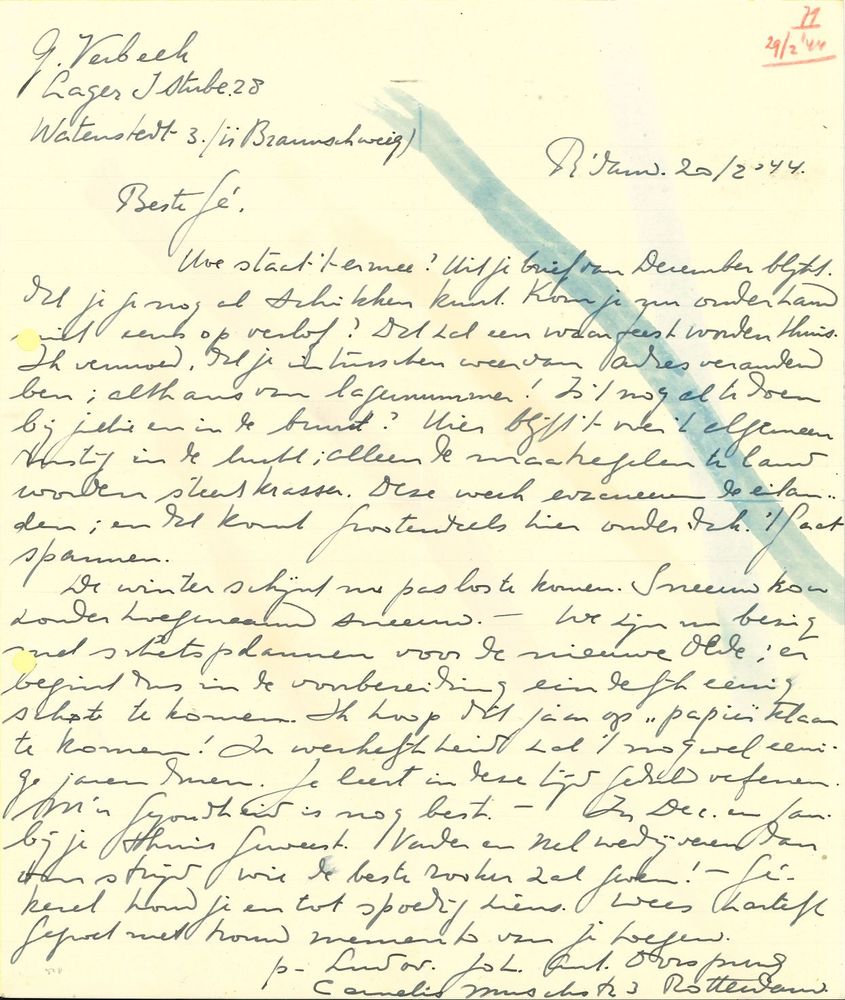 71
29/2 '44
G. Verbeek
Lager I Stube.28
Watenstedt 3. (ü Braunschweig)
R'dam. 20/2 '44.
Beste Gé.
Hoe staat 't ermee? Uit je brief van December blijkt.
dat je je nog al schikken kunt. Kom je zoo onderhand
niet eens op verlof? Dat zal een waar feest worden thuis.
Ik vermoed, dat je intusschen weer van adres veranderd
ben; althans van lagernummer! Is 't nog al te doen
bij jelie en in de buurt? Hier blijft 't over 't algemeen
rustig in de lucht; alleen de maatregelen te land
worden steeds krasser. Deze week evacueeren de eilan-
den; en dat komt grootendeels hier onder dak. 't Gaat
spannen.
De winter schijnt nu pas los te komen. Sneeuw kou
zonder noemenswaard sneeuw. — We zijn nu bezig
met schetsplannen voor de nieuwe ; er
begint dus in de voorbereiding eindelijk eenig
schot te komen. Ik hoop dit jaar op "papier" klaar
te komen! In werkelijkheid zal 't nog wel eeni-
ge jaren duren. Je leert in deze tijd geduld oefenen.
M'n gezondheid is nog best. — In Dec. en Jan.
bij je thuis geweest. Vader en Nel wedijveren dan
om strijd wie de beste rooker zal zijn! — Gé-
kerel houd je en tot spoedig ziens. Wees hartelijk
gegroet met trouw memento van je toegen.
p. Ludov. Joh. Ant. Oversprung
Cornelis Muschstr 3 Rotterdam.